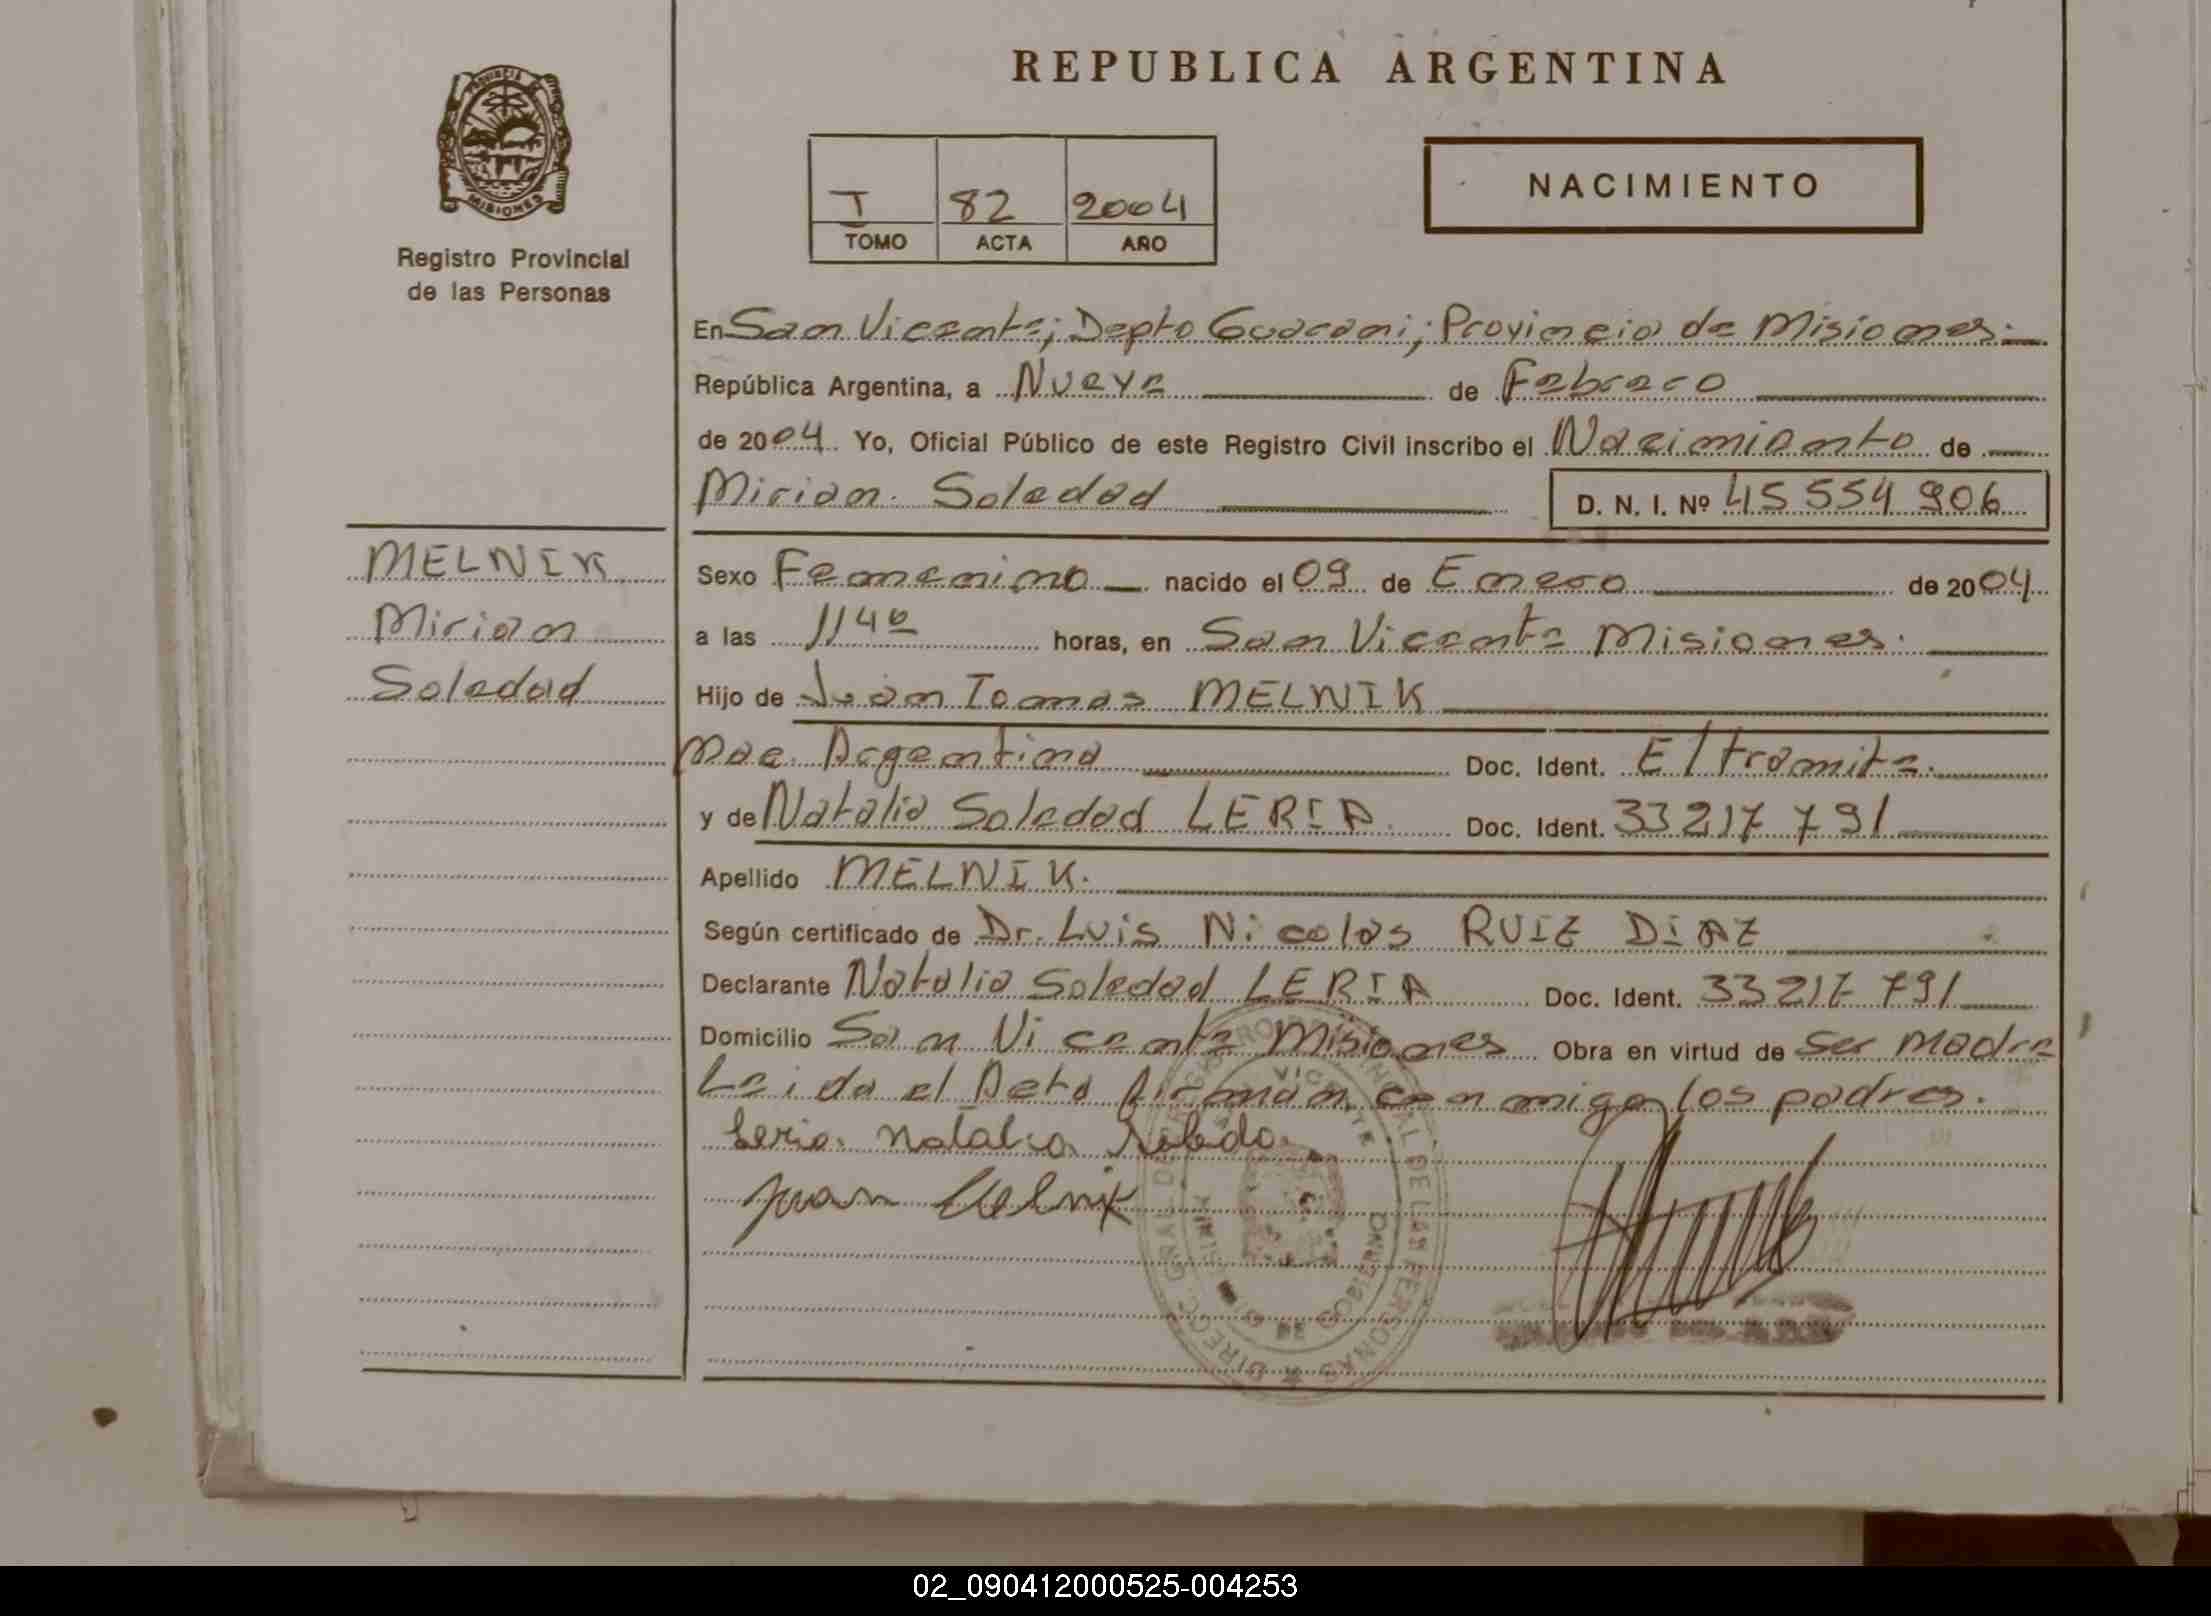 REPUBLICA ARGENTINA
PROVINCIA DE MISIONES
Registro Provincial
de las Personas
T 82 2004
TOMO ACTA AÑO
NACIMIENTO
En San Vicente; Depto Guarani; Provincia de Misiones.
República Argentina, a Nueve de Febrero
de 2004 Yo, Oficial Público de este Registro Civil inscribo el Nacimiento de
Mirian Soledad D. N. I. Nº 45 554 906
MELNIK
Mirian
Soledad
Sexo Femenino nacido el 09 de Enero de 2004
a las 1140 horas, en San Vicente Misiones.
Hijo de Juan Tomas MELNIK
Nac. Argentina Doc. Ident. E/tramite.
y de Natalia Soledad LERIA. Doc. Ident. 33 217 791
Apellido MELNIK.
Según certificado de Dr. Luis Nicolas RUIZ DIAZ
Declarante Natalia Soledad LERIA Doc. Ident. 33 217 791
Domicilio San Vicente Misiones Obra en virtud de Ser Madre
Leida el Acta firman conmigo los padres.
Leria Natalia Soleda
Juan Melnik
DIRECC. GRAL. DEL REGISTRO PROVINCIAL DE LAS PERSONAS
SAN VICENTE
MINIST. DE GOBIERNO
02_090412000525-004253